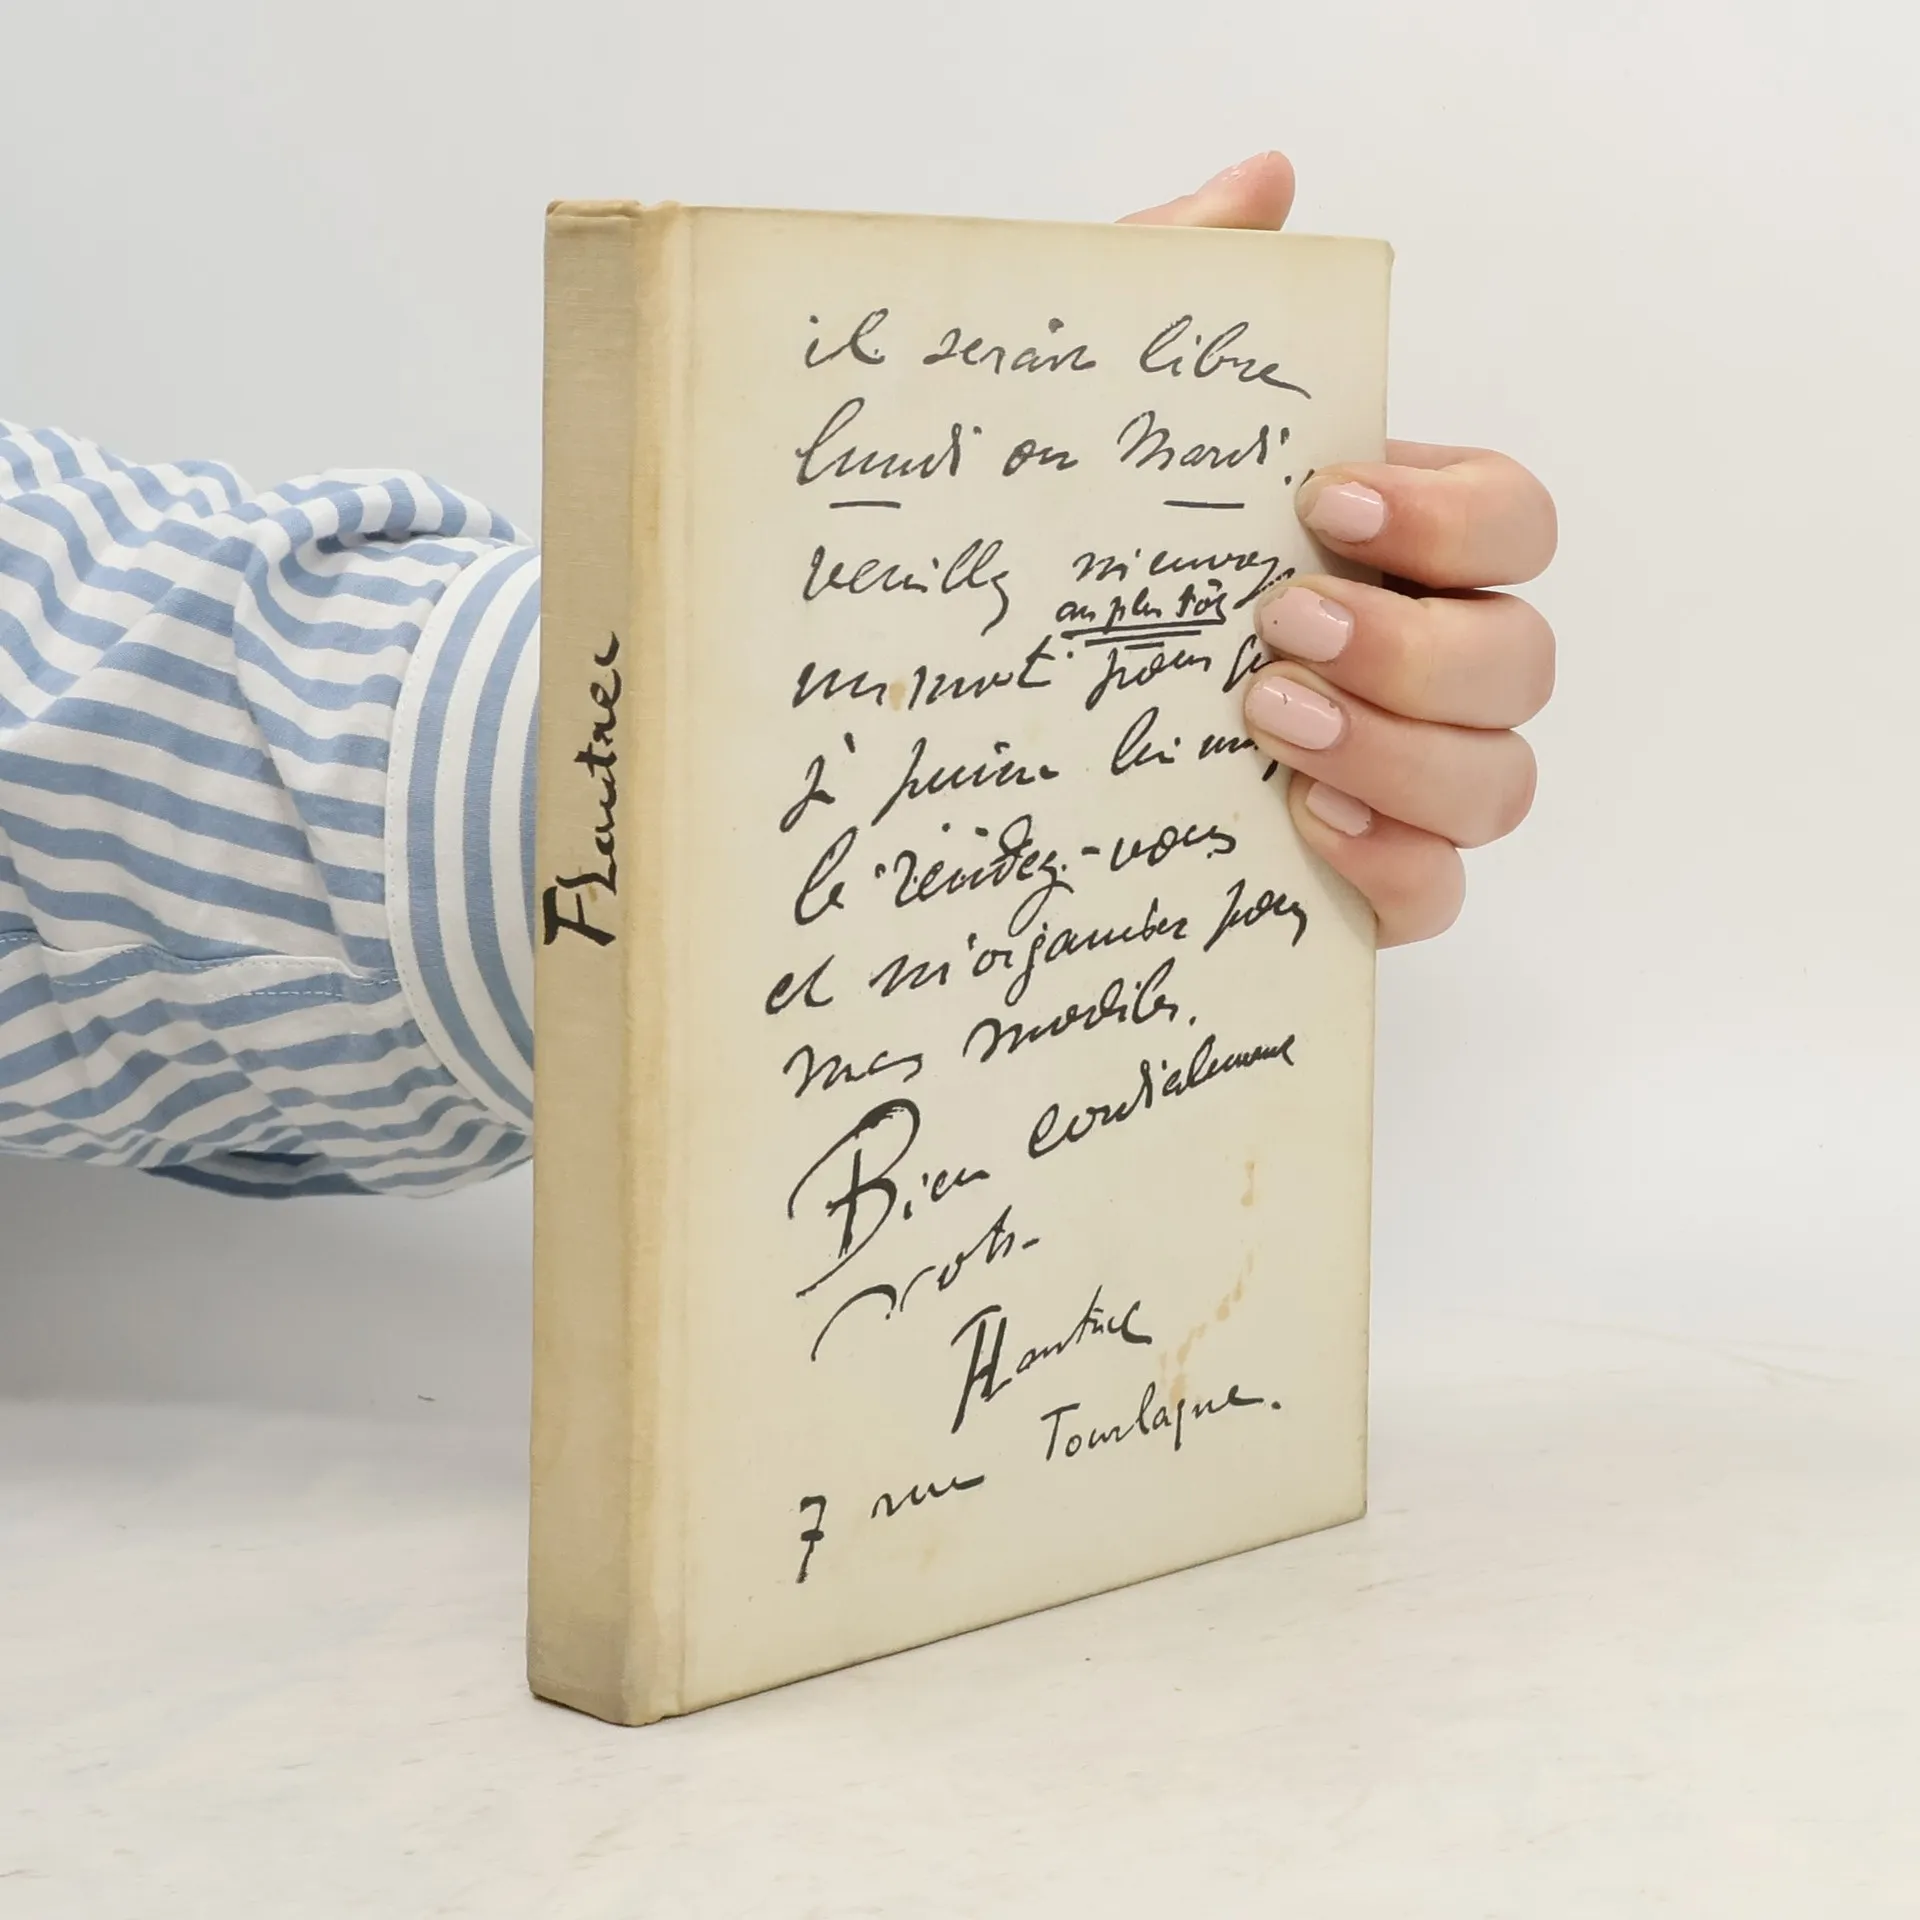 HLautrec
il serait libre
lundi ou Mardi.
veuillez m'envoyer
au plus tôt
un mot pour que
je puisse lui
le rendez-vous
et m'organiser pour
mes modèles.
Bien cordialement
votre
HLautrec
7 rue Tourlaque.